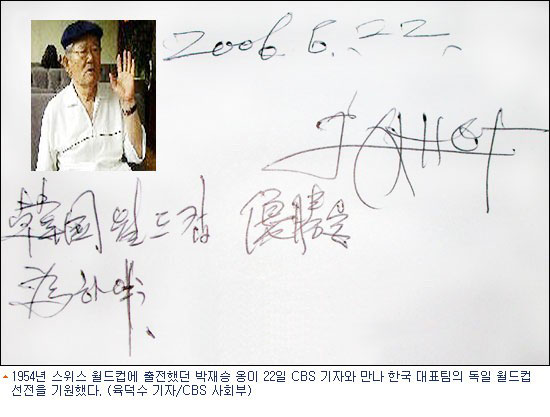 2006. 6. 22.
韓國 월드컵 優勝을
爲하여
1954년 스위스 월드컵에 출전했던 박재승 옹이 22일 CBS 기자와 만나 한국 대표팀의 독일 월드컵
선전을 기원했다. (육덕수 기자/CBS 사회부)